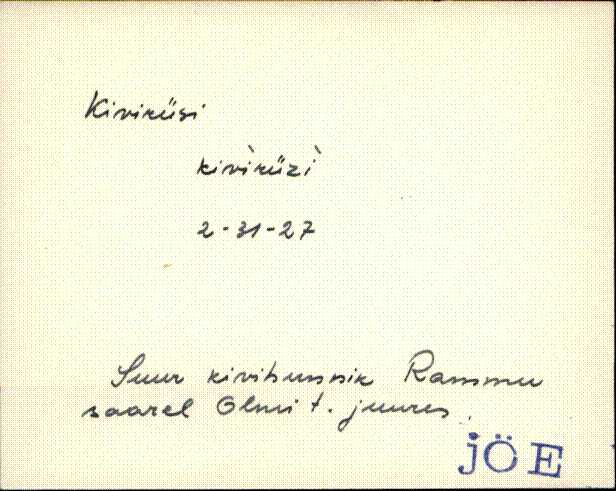 Kiviküsi
kivìküzì
2-31-27
Suur kivihunnik Rammu
saarel Olmi t. juures.
JÖE